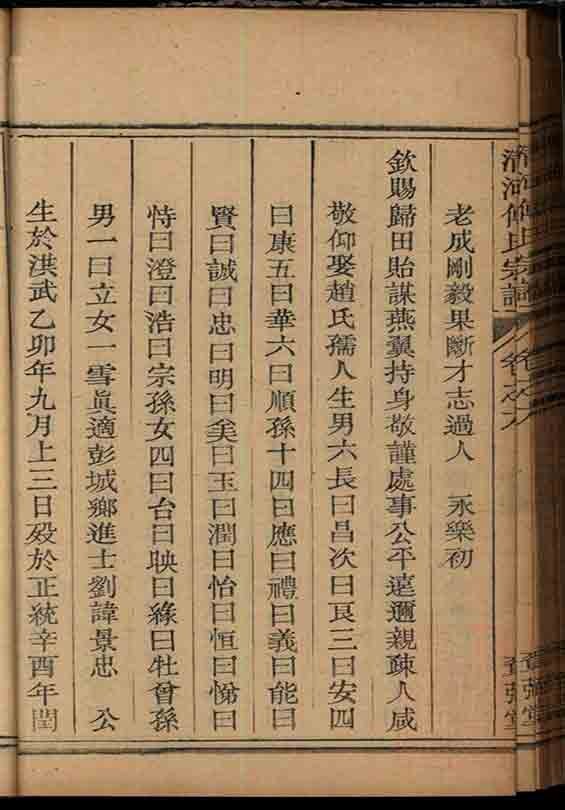 清河傅氏宗譜
卷之六
老成剛毅果斷才志過人 永樂初
欽賜歸田貽謀燕翼持身敬謹處事公平遠邇親疎人咸
敬仰娶趙氏孺人生男六長曰昌次曰艮三曰安四
曰康五曰華六曰順孫十四曰應曰禮曰義曰能曰
賢曰誠曰忠曰明曰矣曰玉曰潤曰怡曰恒曰悌曰
恃曰澄曰浩曰宗孫女四曰台曰映曰緣曰牡曾孫
男一曰立女一雪眞適彭城鄉進士劉諱景忠 公
生於洪武乙卯年九月上三日歿於正統辛酉年閏